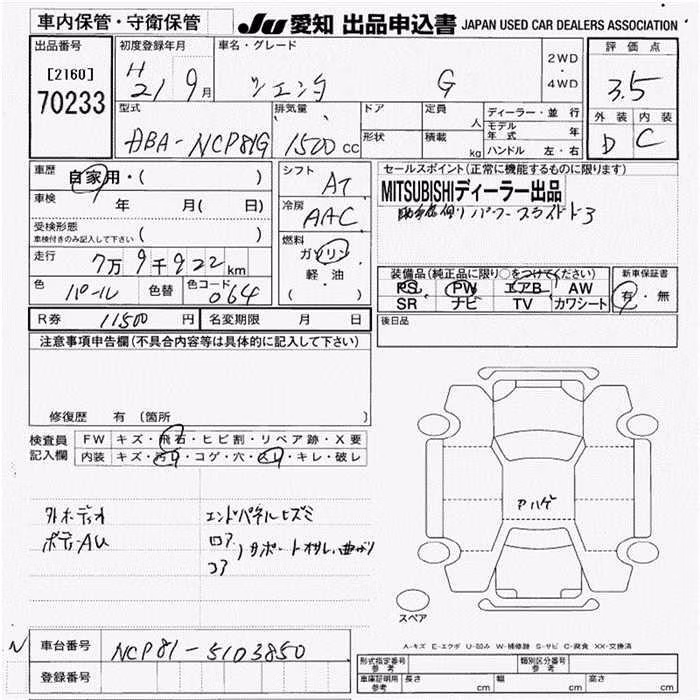 車内保管・守衛保管
JU 愛知 出品申込書 JAPAN USED CAR DEALERS ASSOCIATION
出品番号
[2160]
70233
初度登録年月
H
21 9月
車名・グレード
シエンタ G
2WD
・
4WD
評価点
3.5
外装 内装
D C
型式
ABA-NCP81G
排気量
1500cc
ドア
形状
定員
人
積載
kg
ディーラー・並行
モデル年式 年
ハンドル 左・右
車歴
自家用・( )
車検
年 月( 日)
受検形態
車検付きのみ記入して下さい ( )
走行
7万9千922km
色
パール
色替
色コード
064
シフト
AT
冷房
AAC
燃料
ガソリン
軽・油
( )
セールスポイント(正常に機能するものに限ります)
MITSUBISHIディーラー出品
パワースライドドア
装備品(純正品に限り○をつけてください)
PS PW エアB AW
SR ナビ TV カワシート
新車保証書
有・無
R券 11500円
名変期限 月 日
後日品
注意事項申告欄(不具合内容等は具体的に記入して下さい)
修復歴 有(箇所 )
検査員
記入欄
FW キズ・飛石・ヒビ割・リペア跡・X要
内装 キズ・汚れ・コゲ・穴・スレ・キレ・破レ
外ホディオ
ボディAU
エンドパネルヒズミ
ロア
コア
サポートオサレ、曲がり
アハゲ
スペア
A-キズ E-エクボ U-凹み W-補修跡 S-サビ C-腐食 XX-交換済
N
車台番号
NCP81-5103850
登録番号
形式指定番号
参考
類別区分番号
参考
車庫証明用
参考
長さ cm
幅 cm
高さ cm